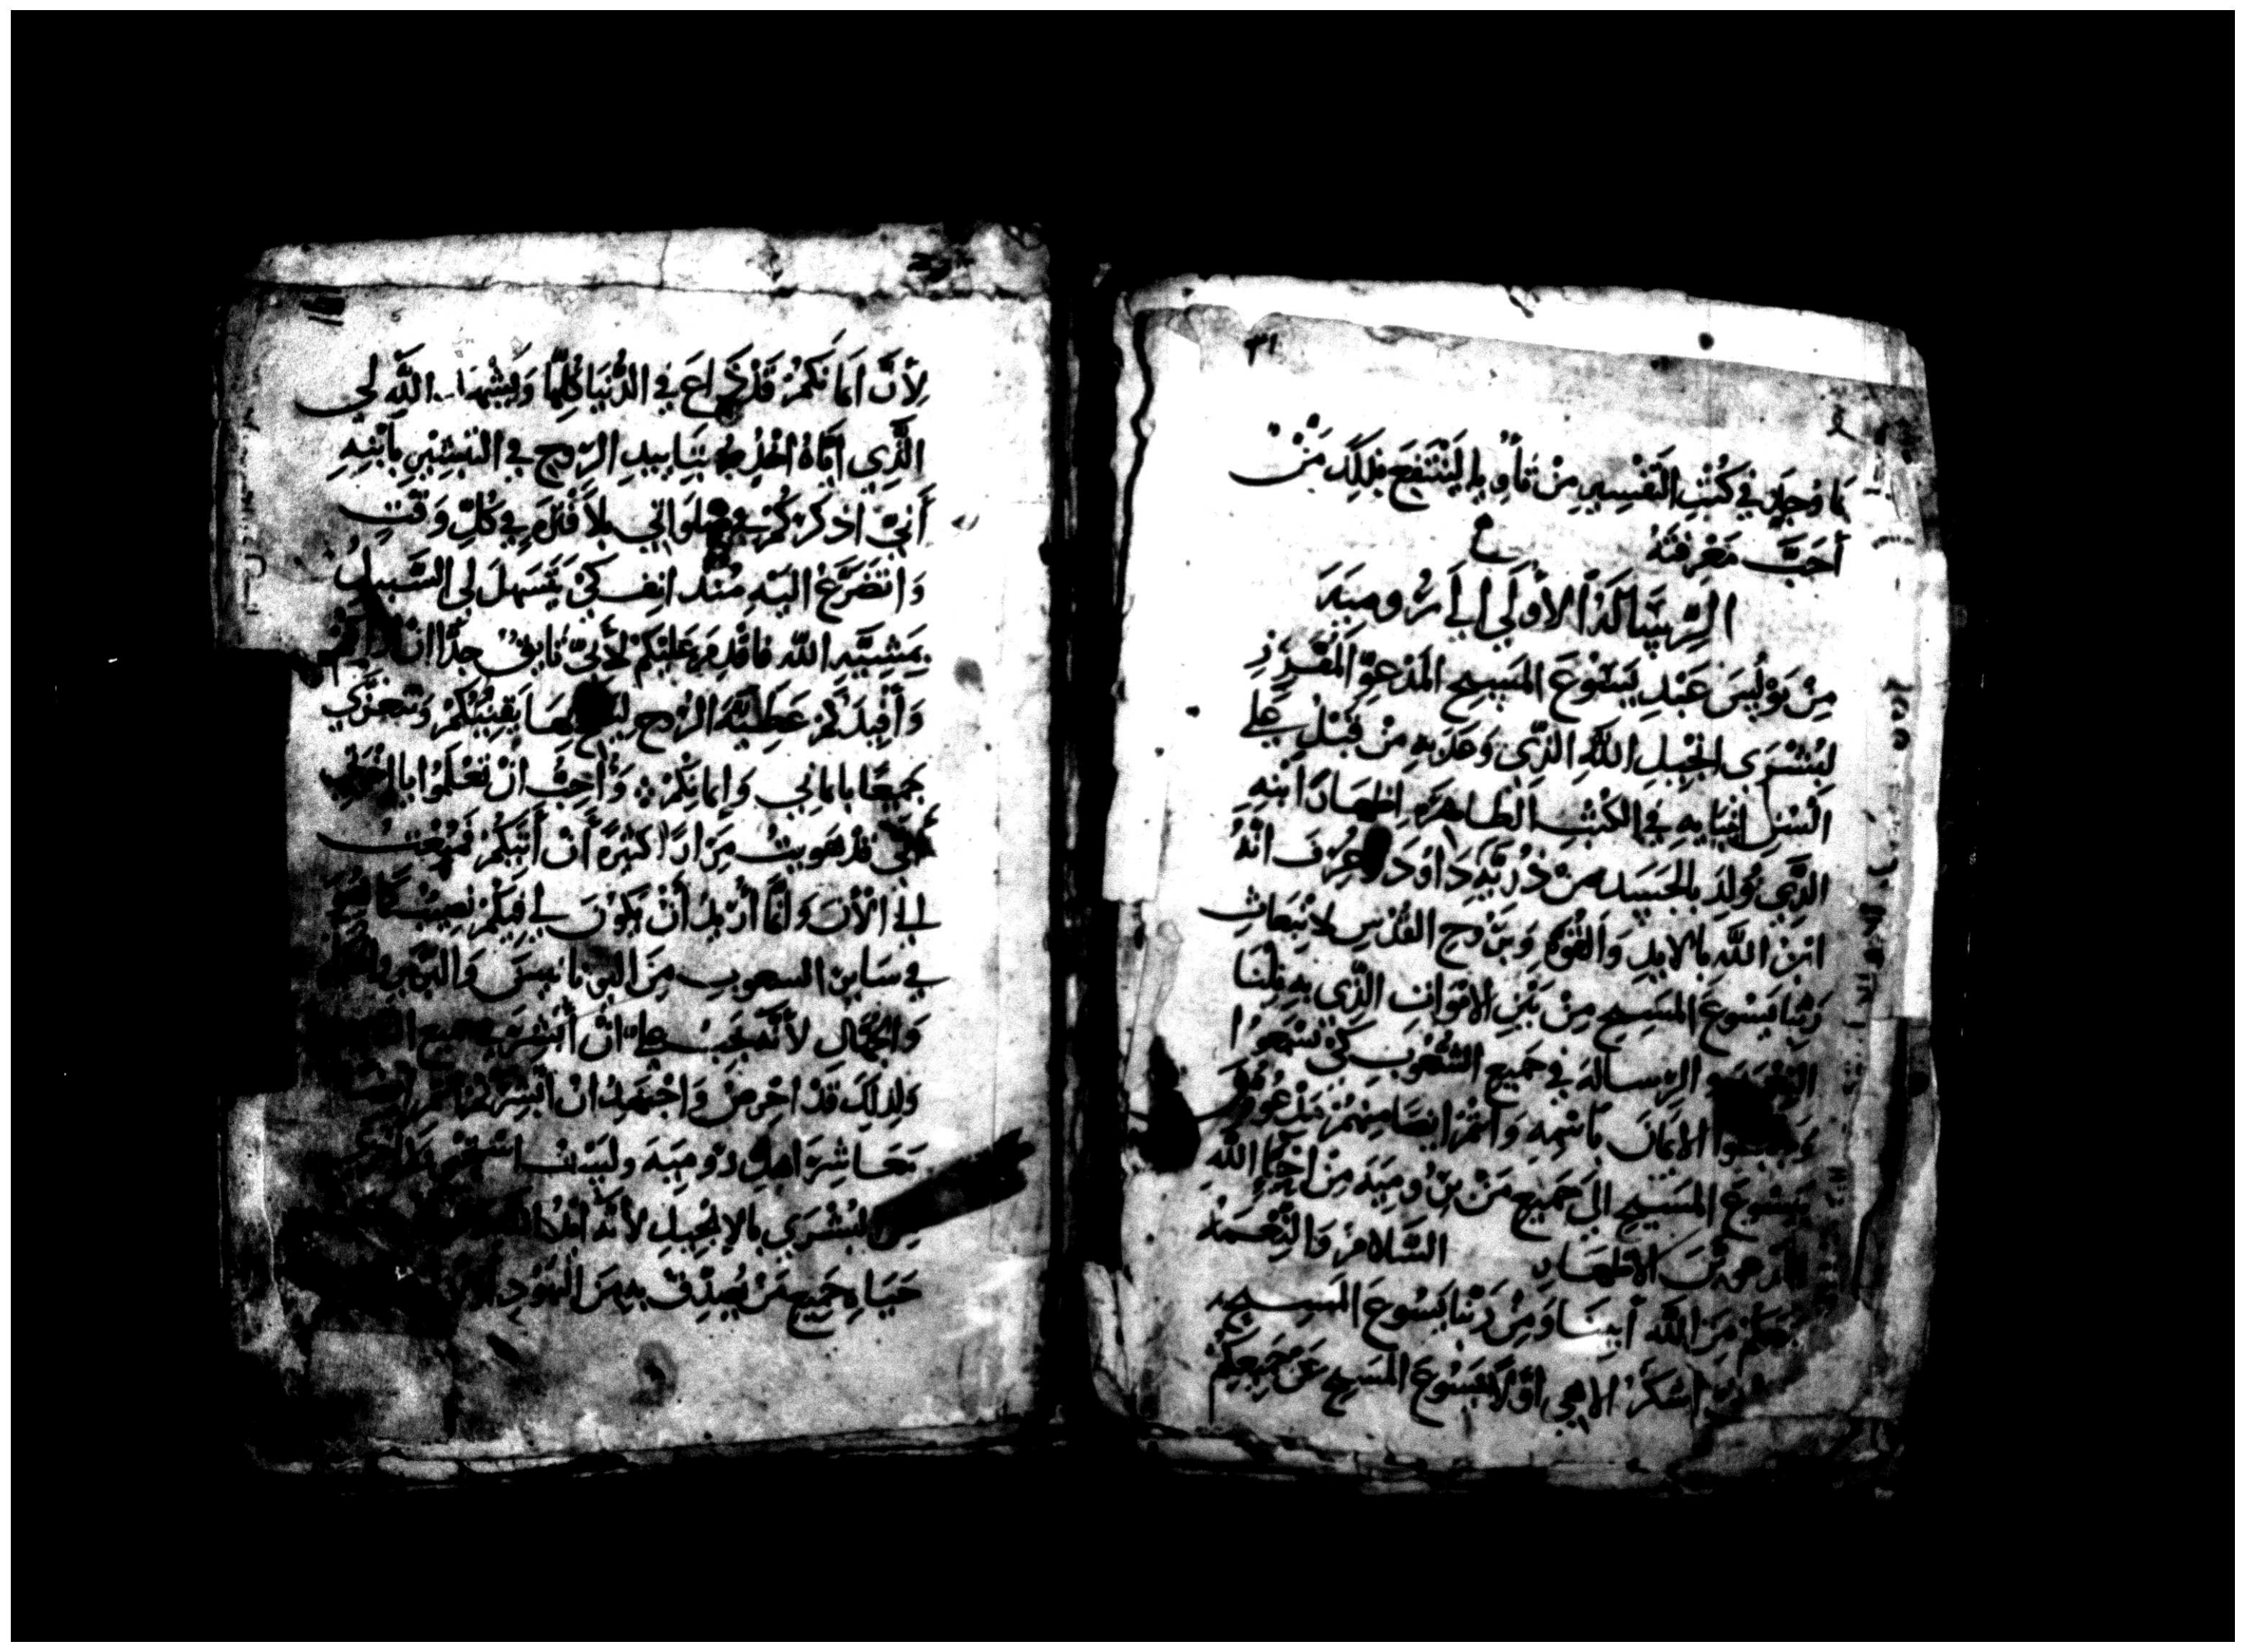 ٣١
ما وجد في كتب التفسير من تأويل لينتفع بذلك من
أحب معرفته
الرسالة الأولى الى رومية
من بولس عبد يسوع المسيح المدعو المفرز
لبشرى انجيل الله الذي وعد به من قبل على
السن انبيايه في الكتب الطاهرة اظهار ابنه
الذي ولد بالجسد من ذرية داود وعرف انه
ابن الله بالايد والقوة وبروح القدس لانبعاث
ربنا يسوع المسيح من بين الاموات الذي به نلنا
الرسالة في جميع الشعوب كي يسمعوا
الايمان باسمه وانتم ايضا منهم مدعوون
يسوع المسيح الى جميع من برومية من احبا الله
الاطهار السلام والنعمة
معكم من الله أبينا ومن ربنا يسوع المسيح
اشكر الاهي اولا يسوع المسيح عن جميعكم
لأن امانكم قد ذاع في الدنيا كلها ويشهد الله لي
الذي اياه اخدم بتاييد الروح في التبشير بابنه
أني اذكركم في صلواتي بلا فتلم في كل وقت
واتضرع اليه منذ انف كي يتسهل لي السبيل
بمشية الله فاقدم عليكم لأني تايق جدا ان اراكم
وأفيدكم عطية الروح ليصح بها يقينكم ونتعزى
جميعا بايماني وايمانكم وأحب ان تعلموا يا اخوتي
أني قد هويت مرارا كثيرة أن أتيكم فمنعت
الى الان وانما أريد أن يكون لي فيكم نصيب كما هو
في ساير الشعوب من اليونانيين والبربر
والجهال لأنه يجب علي ان أبشر جميع
ولذلك قد احرص واجتهد ان ابشركم
معاشر اهل رومية وليست استحي
من البشرى بالإنجيل لأنه
حياة جميع من يصدق به من اليهود